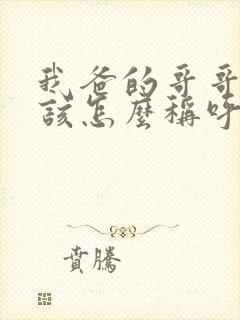 我爸的哥哥
該怎麼稱呼
賁騰